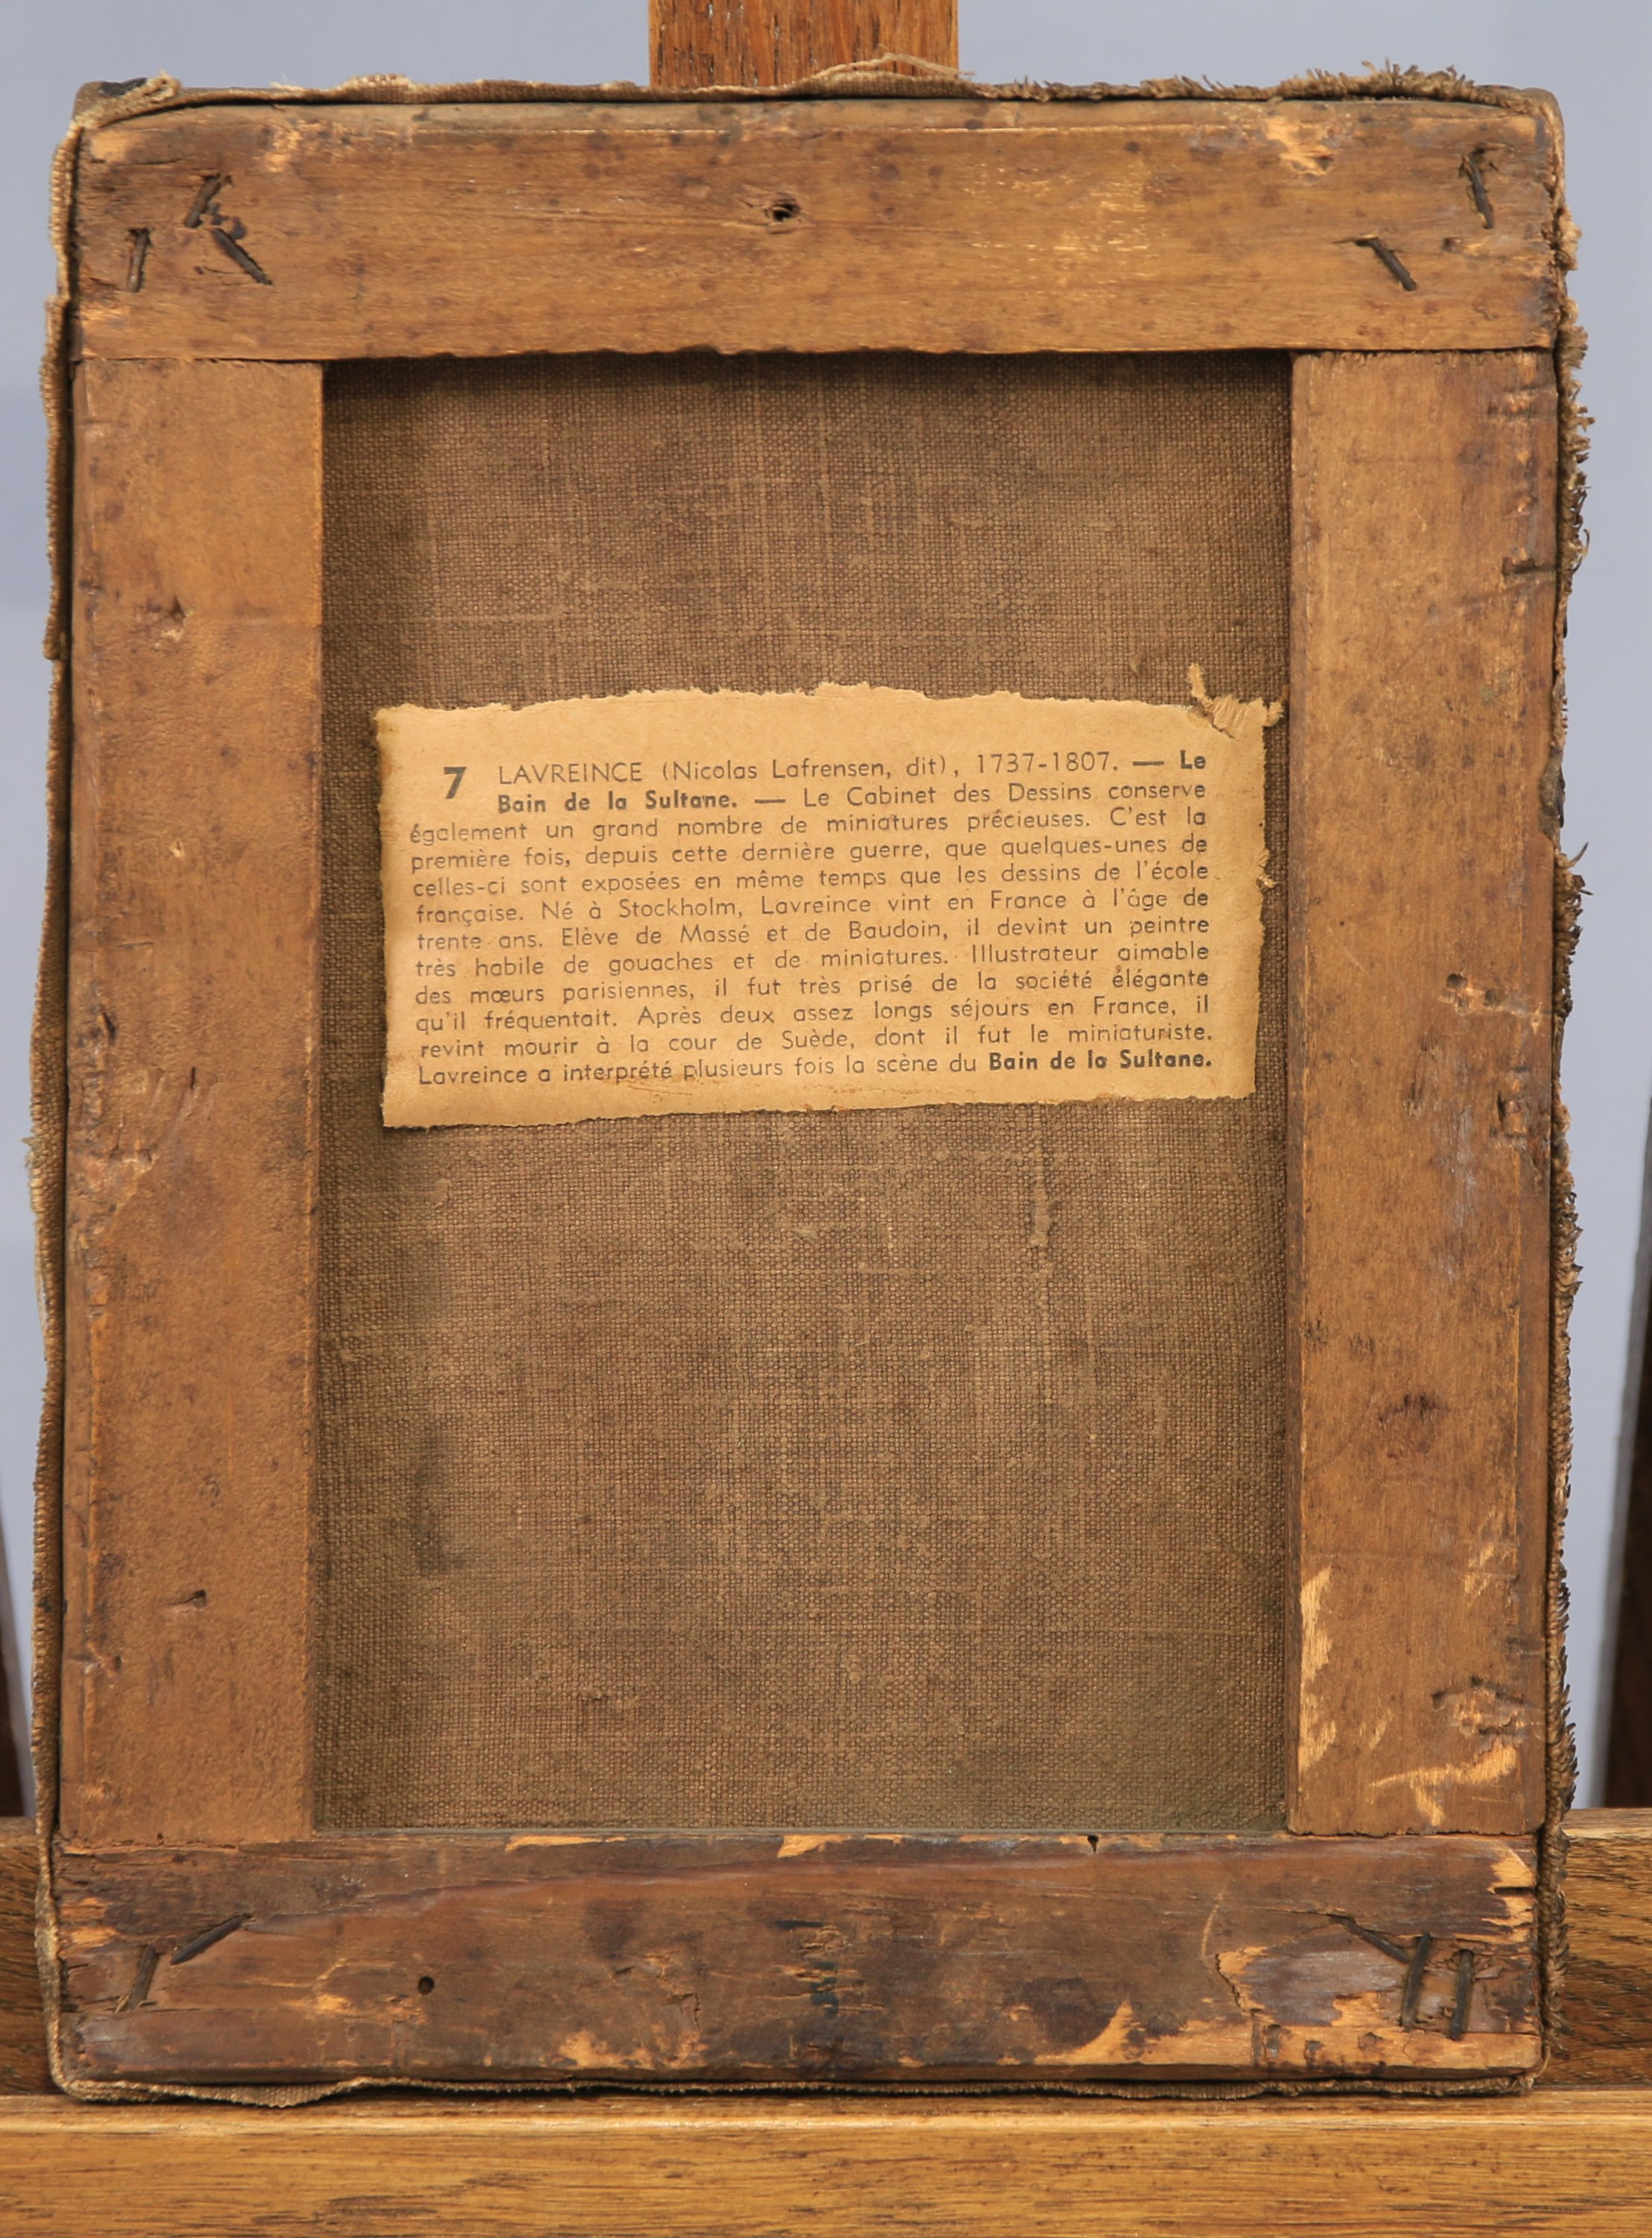 7 LAVREINCE (Nicolas Lafrensen, dit), 1737-1807. — Le
Bain de la Sultane. — Le Cabinet des Dessins conserve
également un grand nombre de miniatures précieuses. C'est la
première fois, depuis cette dernière guerre, que quelques-unes de
celles-ci sont exposées en même temps que les dessins de l'école
française. Né à Stockholm, Lavreince vint en France à l'âge de
trente ans. Elève de Massé et de Baudoin, il devint un peintre
très habile de gouaches et de miniatures. Illustrateur aimable
des mœurs parisiennes, il fut très prisé de la société élégante
qu'il fréquentait. Après deux assez longs séjours en France, il
revint mourir à la cour de Suède, dont il fut le miniaturiste.
Lavreince a interprété plusieurs fois la scène du Bain de la Sultane.